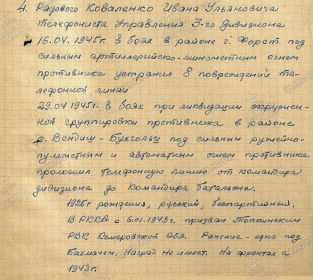 4. Рядового Коваленко Ивана Ульяновича
телефониста Управления 3-го дивизиона
16.04.1945г. в боях в районе г. Форст под
сильным артиллерийско-минометным огнем
противника устранил 8 повреждений те-
лефонной линии
29.04.1945г. в боях при ликвидации окружен-
ной группировки противника в районе
г. Вендиш-Бухгольц под сильным ружейно-
пулеметным и автоматным огнем противника
проложил телефонную линию от командира
дивизиона до командира батальона.
1926г рождения, русский, беспартийный.
В РККА с 6.01.1943г. призван Топкинским
РВК Кемеровской обл. Ранение - одно под
Бахмачем. Наград не имеет. На фронтах с
1943г.